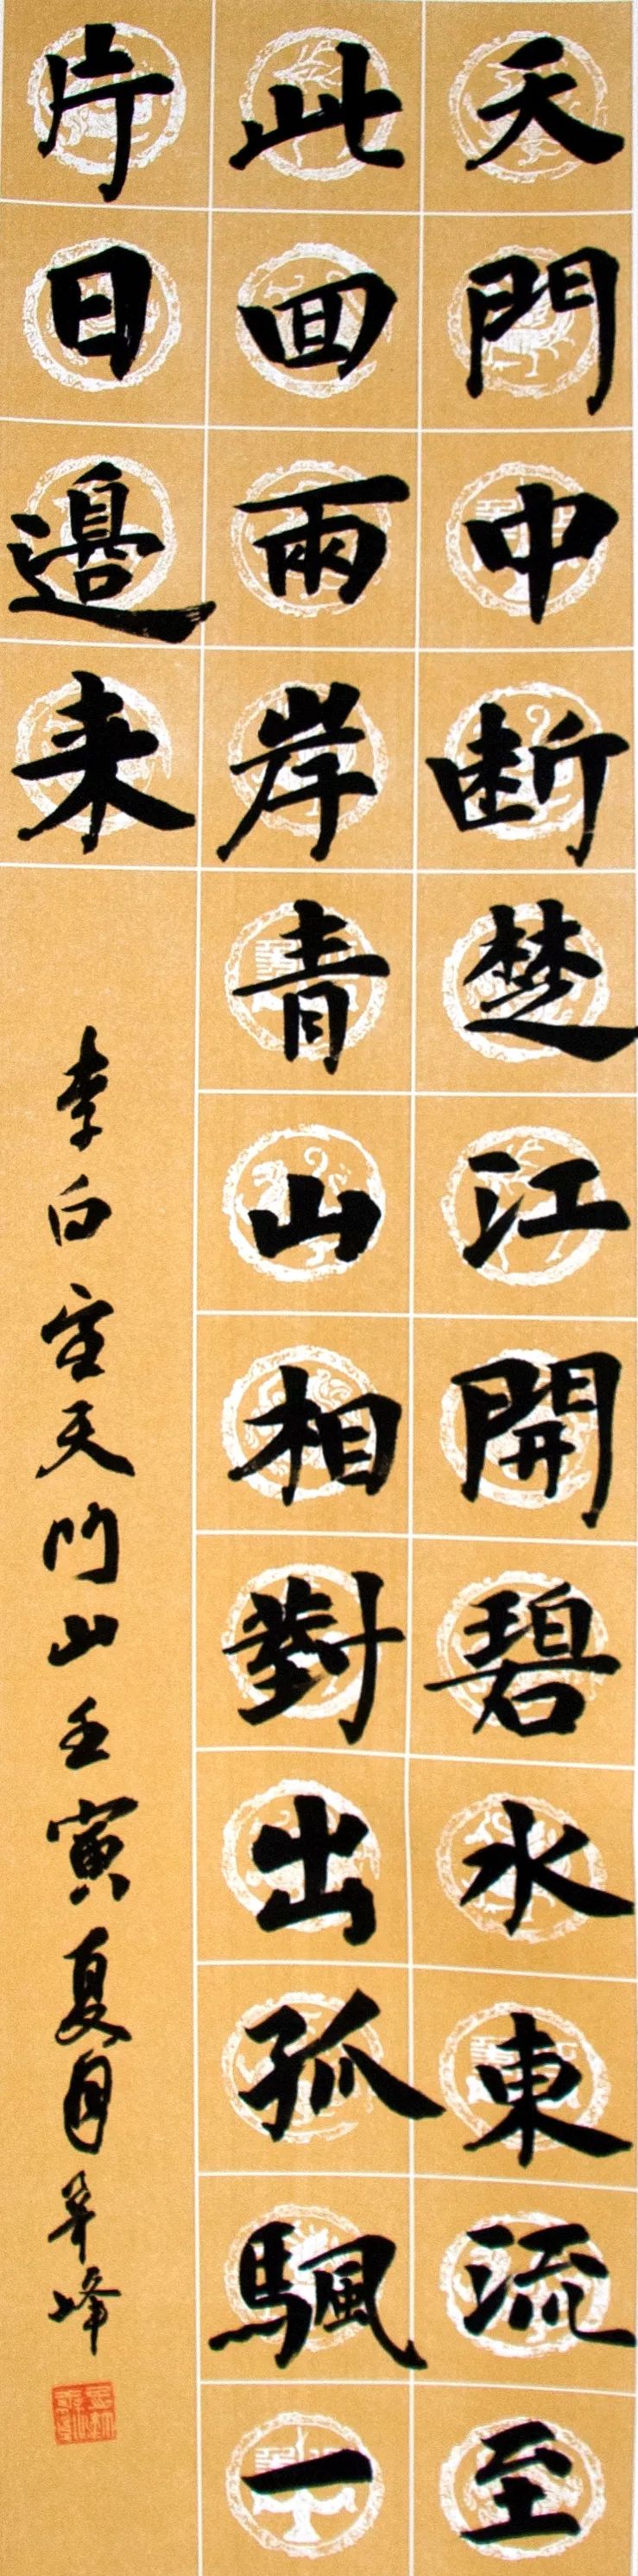 天門中断楚江開碧水東流至
此囬兩岸青山相對出孤颿一
片日邉来
李白望天门山壬寅夏月峰